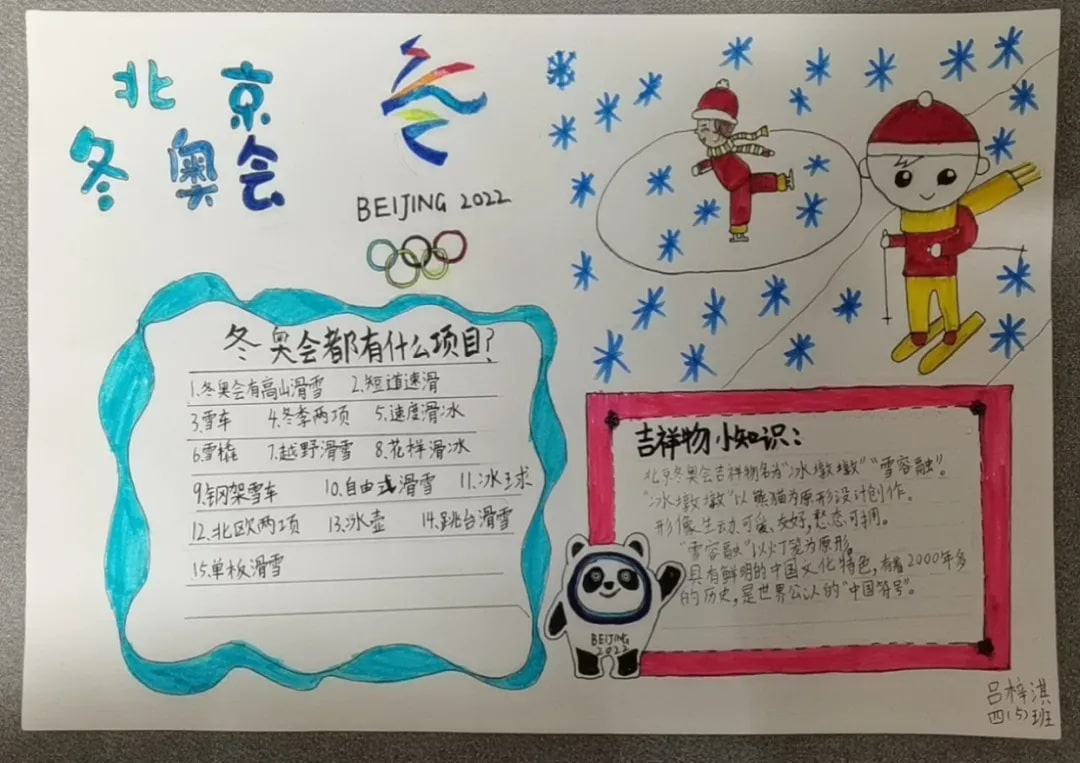 北京
冬奥会
BEIJING 2022
冬奥会都有什么项目?
1.冬奥会有高山滑雪 2.短道速滑
3.雪车 4.冬季两项 5.速度滑冰
6.雪橇 7.越野滑雪 8.花样滑冰
9.钢架雪车 10.自由式滑雪 11.冰球
12.北欧两项 13.冰壶 14.跳台滑雪
15.单板滑雪
吉祥物小知识:
北京冬奥会吉祥物名为“冰墩墩”“雪容融”。
“冰墩墩”以熊猫为原形设计创作。
形像生动、可爱、友好,憨态可掬。
“雪容融”以灯笼为原形。
具有鲜明的中国文化特色,有着2000年多
的历史,是世界公认的“中国符号”。
BEIJING
2022
吕梓淇
四(5)班